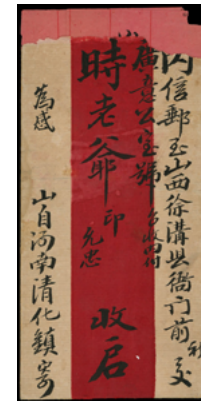 内信郵至山西徐溝縣衙门前 交
廣意公宝號
時老爺印允忠 收启
為感
山自河南清化鎮寄